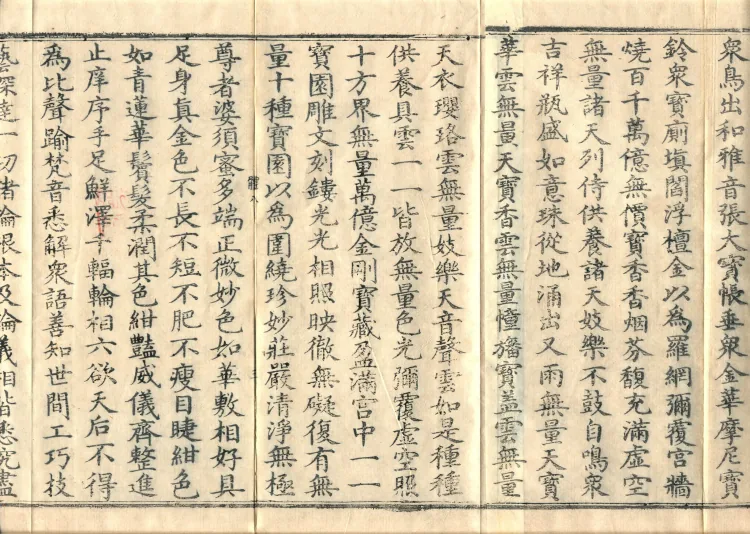 衆鳥出和雅音張大寶帳垂衆金華摩尼寶
鈴衆寶廁塡閻浮檀金以爲羅網彌覆宮牆
燒百千萬億無價寶香香烟芬馥充滿虛空
無量諸天列侍供養諸天妓樂不鼓自鳴衆
吉祥瓶盛如意珠從地涌出又雨無量天寶
華雲無量天寶香雲無量幢旛寶盖雲無量
天衣瓔珞雲無量妓樂天音聲雲如是種種
供養具雲一一皆放無量色光彌覆虛空照
十方界無量萬億金剛寶藏盈滿宮中一一
寶園雕文刻鏤光光相照映徹無礙復有無
量十種寶園以爲圍繞珍妙莊嚴清淨無極
尊者婆須蜜多端正微妙色如華敷相好具
足身真金色不長不短不肥不瘦目睫紺色
如青蓮華鬢髮柔潤其色紺豔威儀齊整進
止庠序手足鮮澤千輻輪相六欲天后不得
爲比聲踰梵音悉解衆語善知世間工巧技
藝深達一切諸論根本及論儀相皆悉究盡